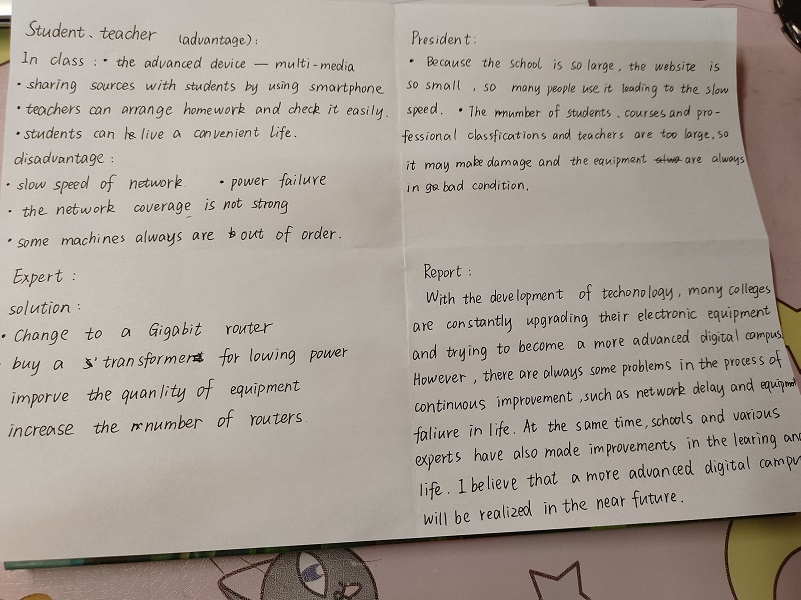 Student、teacher (advantage):
In class: • the advanced device — multi-media
• sharing sources with students by using smartphone
• teachers can arrange homework and check it easily.
• students can live a convenient life.
disadvantage:
• slow speed of network. • power failure
• the network coverage is not strong
• some machines always are out of order.
Expert:
solution:
• Change to a Gigabit router
• buy a transformer for lowing power
imporve the quanlity of equipment
increase the number of routers
President:
• Because the school is so large, the website is
so small, so many people use it leading to the slow
speed. • The mnumber of students, courses and pro-
fessional classfications and teachers are too large, so
it may make damage and the equipment are always
in bad condition.
Report:
With the development of techonology, many colleges
are constantly upgrading their electronic equipment
and trying to become a more advanced digital campus.
However, there are always some problems in the process of
continuous improvement, such as network delay and equipment
faliure in life. At the same time, schools and various
experts have also made improvements in the learing and
life. I believe that a more advanced digital campu
will be realized in the near future.